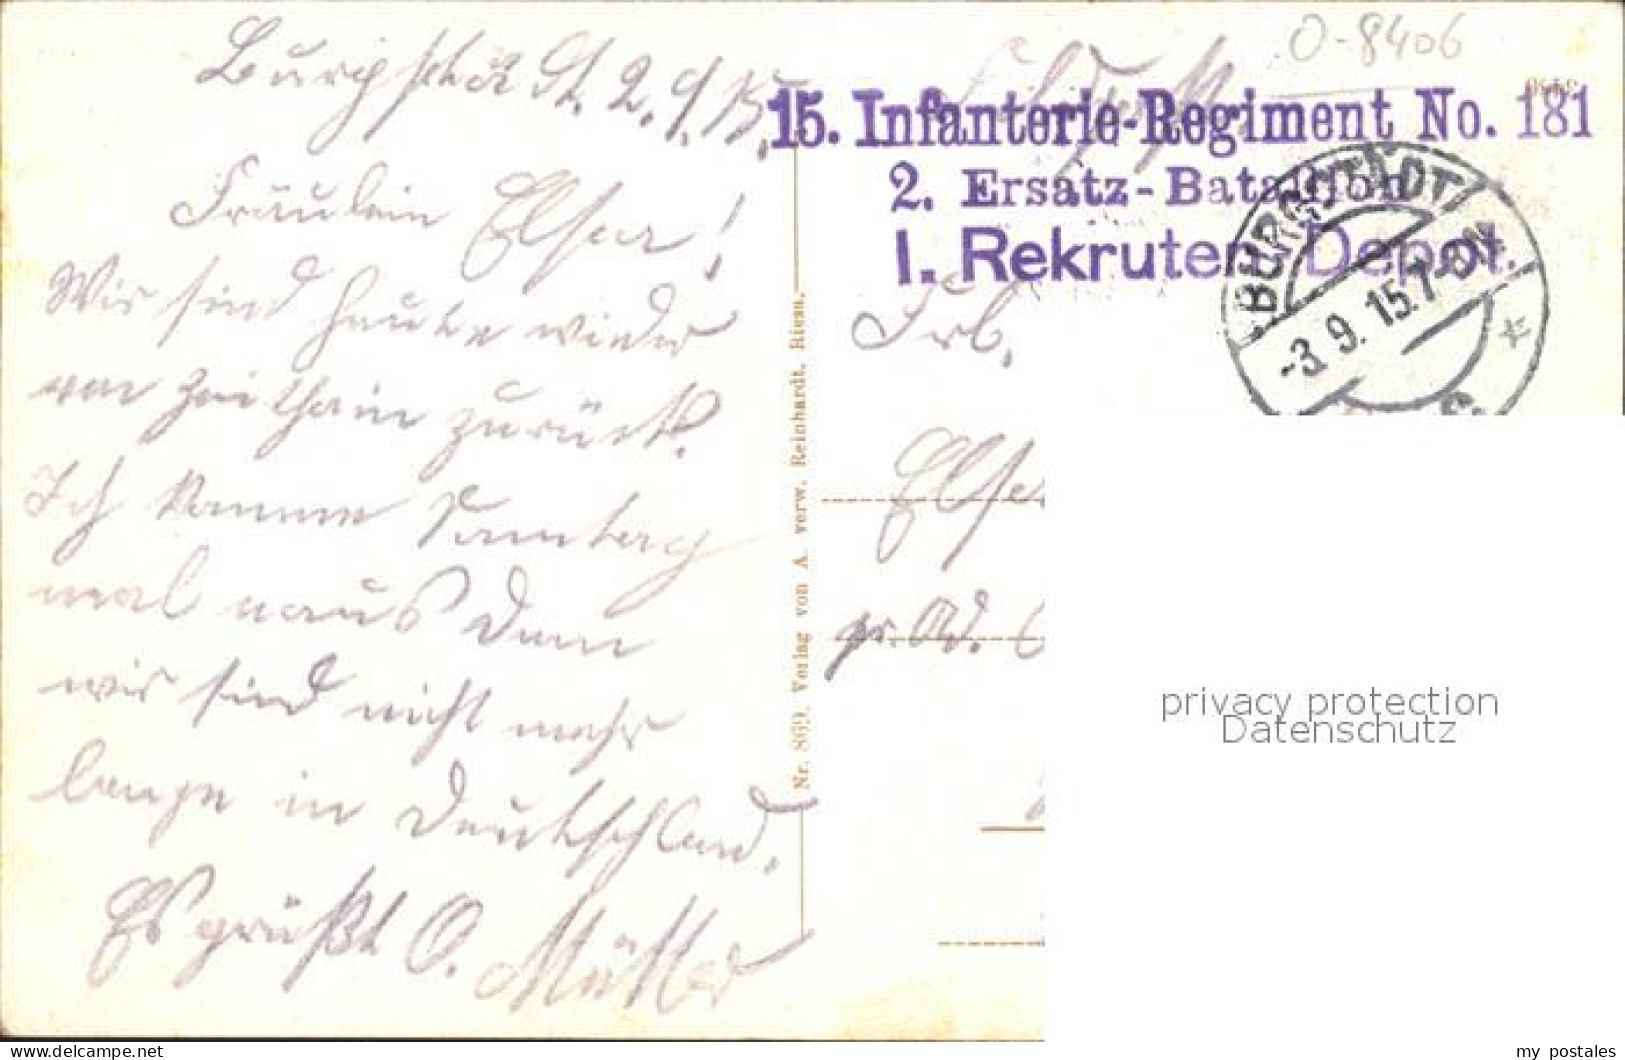 Burgstädt, 2.9.15.
Fräulein Elsa!
Wir sind heute wieder
von Zeithain zurück.
Ich komme Sonntag
mal naus denn
wir sind nicht mehr
lange in Deutschland.
Es grüßt O. Müller
Nr. 869. Verlag von A. verw. Reinhardt, Riesa.
O-8406
Feldpost
15. Infanterie-Regiment No. 181
2. Ersatz-Bataillon
I. Rekruten Depot.
BURGSTÄDT
-3. 9. 15. 7-8 N.
Frl.
Else
pr. Ad.
privacy protection
Datenschutz
www.delcampe.net
my postales